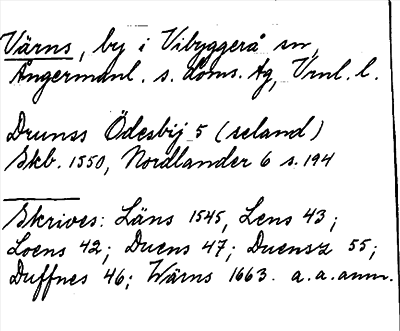 Värns, by i Vibyggerå sn,
Ångermanl. s. doms. tg, Vrnl. l.
Drunss Ödesbij 5 (seland)
Skb. 1550, Nordlander 6 s. 194
Skrives: Läns 1545, Lens 43;
Loens 42; Duens 47; Duensz 55;
Duffnes 46; Wärns 1663. a. a. anm.